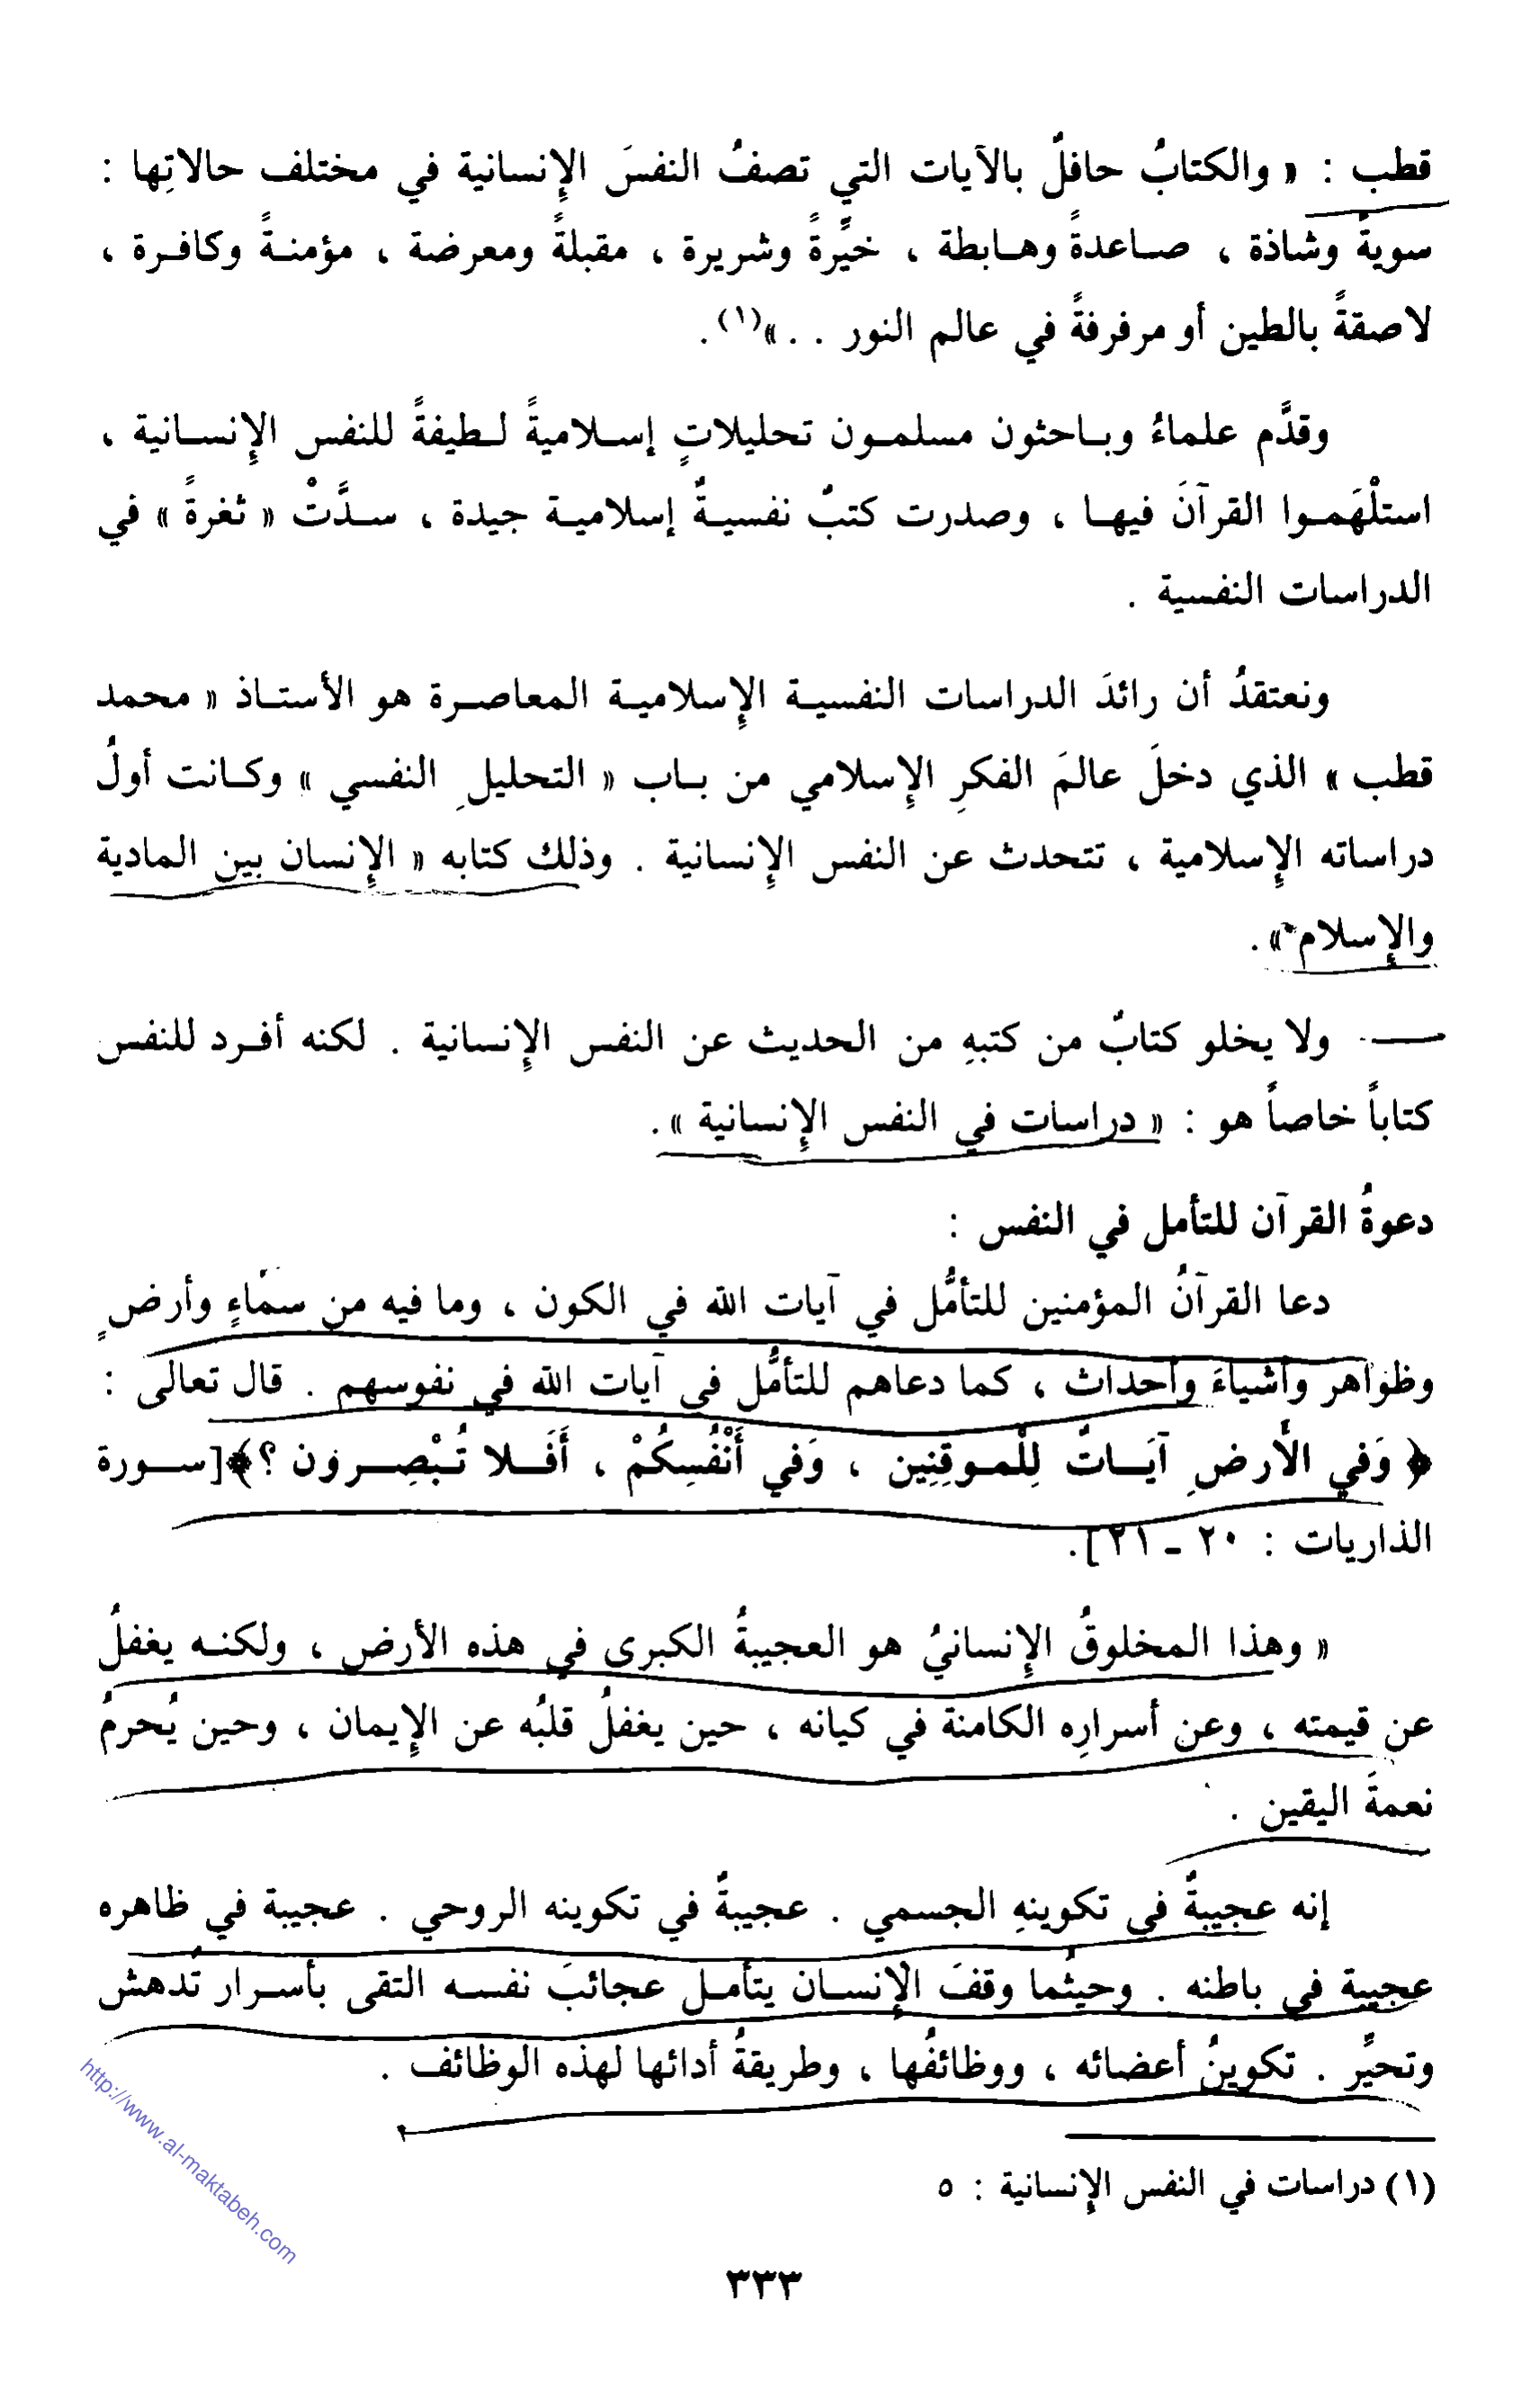 قطب : « والكتابُ حافلٌ بالآيات التي تصفُ النفسَ الإِنسانية في مختلف حالاتِها :
سويةً وشاذة ، صاعدةً وهابطة ، خيِّرةً وشريرة ، مقبلةً ومعرضة ، مؤمنةً وكافرة ،
لاصقةً بالطين أو مرفرفةً في عالم النور . . »(١).
وقدَّم علماءُ وباحثون مسلمون تحليلاتٍ إسلاميةً لطيفةً للنفس الإِنسانية ،
استلْهَموا القرآنَ فيها ، وصدرت كتبٌ نفسيةٌ إسلامية جيدة ، سدَّتْ « ثغرةً » في
الدراسات النفسية .
ونعتقدُ أن رائدَ الدراسات النفسية الإِسلامية المعاصرة هو الأستاذ « محمد
قطب » الذي دخلَ عالمَ الفكرِ الإِسلامي من باب « التحليلِ النفسي » وكانت أولُ
دراساته الإِسلامية ، تتحدث عن النفس الإِنسانية . وذلك كتابه « الإِنسان بين المادية
والإِسلام ».
ولا يخلو كتابٌ من كتبهِ من الحديث عن النفس الإِنسانية . لكنه أفرد للنفس
كتاباً خاصاً هو : « دراسات في النفس الإِنسانية ».
دعوةُ القرآن للتأمل في النفس :
دعا القرآنُ المؤمنين للتأمُّل في آيات الله في الكون ، وما فيه من سمَاءٍ وأرضٍ
وظواهر وأشياءَ وأحداث ، كما دعاهم للتأمُّل في آيات الله في نفوسهم . قال تعالى :
﴿ وَفي الأَرضِ آيَاتٌ لِلْموقِنِين ، وَفي أَنْفُسِكُمْ ، أَفَلا تُبْصِرون ؟﴾[سورة
الذاريات : ٢٠ ـ ٢١].
« وهذا المخلوقُ الإِنسانيُ هو العجيبةُ الكبرى في هذه الأرض ، ولكنه يغفلُ
عن قيمته ، وعن أسرارِه الكامنة في كيانه ، حين يغفلُ قلبُه عن الإِيمان ، وحين يُحرمُ
نعمةَ اليقين .
إنه عجيبةٌ في تكوينهِ الجسمي . عجيبةٌ في تكوينه الروحي . عجيبة في ظاهره
عجيبة في باطنه . وحيثُما وقفَ الإنسان يتأمل عجائبَ نفسه التقى بأسرار تُدهش
وتحيِّر . تكوينُ أعضائه ، ووظائفُها ، وطريقةُ أدائها لهذه الوظائف .
(١) دراسات في النفس الإِنسانية : ٥
٣٣٣
http://www.al-maktabeh.com